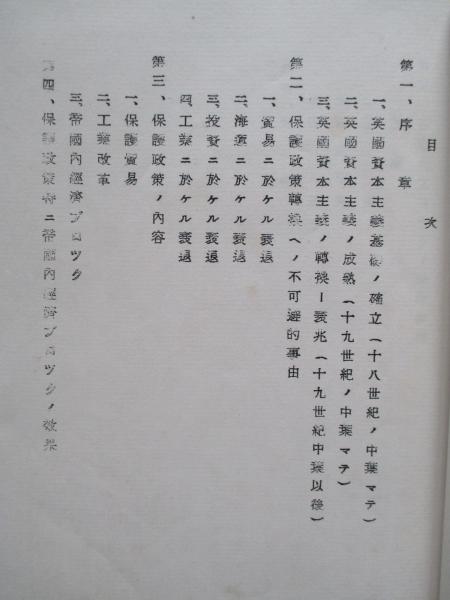 目次
第一、序章
一、英國資本主義基礎ノ確立(十八世紀ノ中葉マテ)
二、英國資本主義ノ成熟(十九世紀ノ中葉マテ)
三、英國資本主義ノ轉換ー衰兆(十九世紀中葉以後)
第二、保護政策轉換ヘノ不可避的事由
一、貿易ニ於ケル衰退
二、海運ニ於ケル衰退
三、投資ニ於ケル衰退
四、工業ニ於ケル衰退
第三、保護政策ノ內容
一、保護貿易
二、工業改革
三、帝國內經濟ブロツク
第四、保護政策帝國內經濟ブロツクノ效果